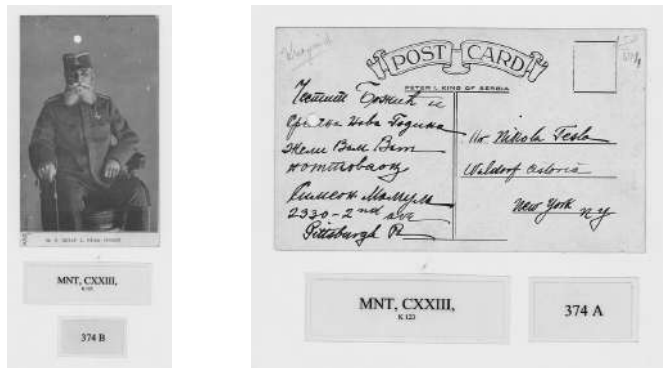 MNT, CXXIII,
374 B
POST CARD
PETER I. KING OF SERBIA
Честити Божић и
Нова Година
жели Вам Ваш
Симеон
2330 - 2nd ave
Pittsburgh Pa
Mr Nikola Tesla
Waldorf Astoria
New York NY
MNT, CXXIII,
K 123
374 A